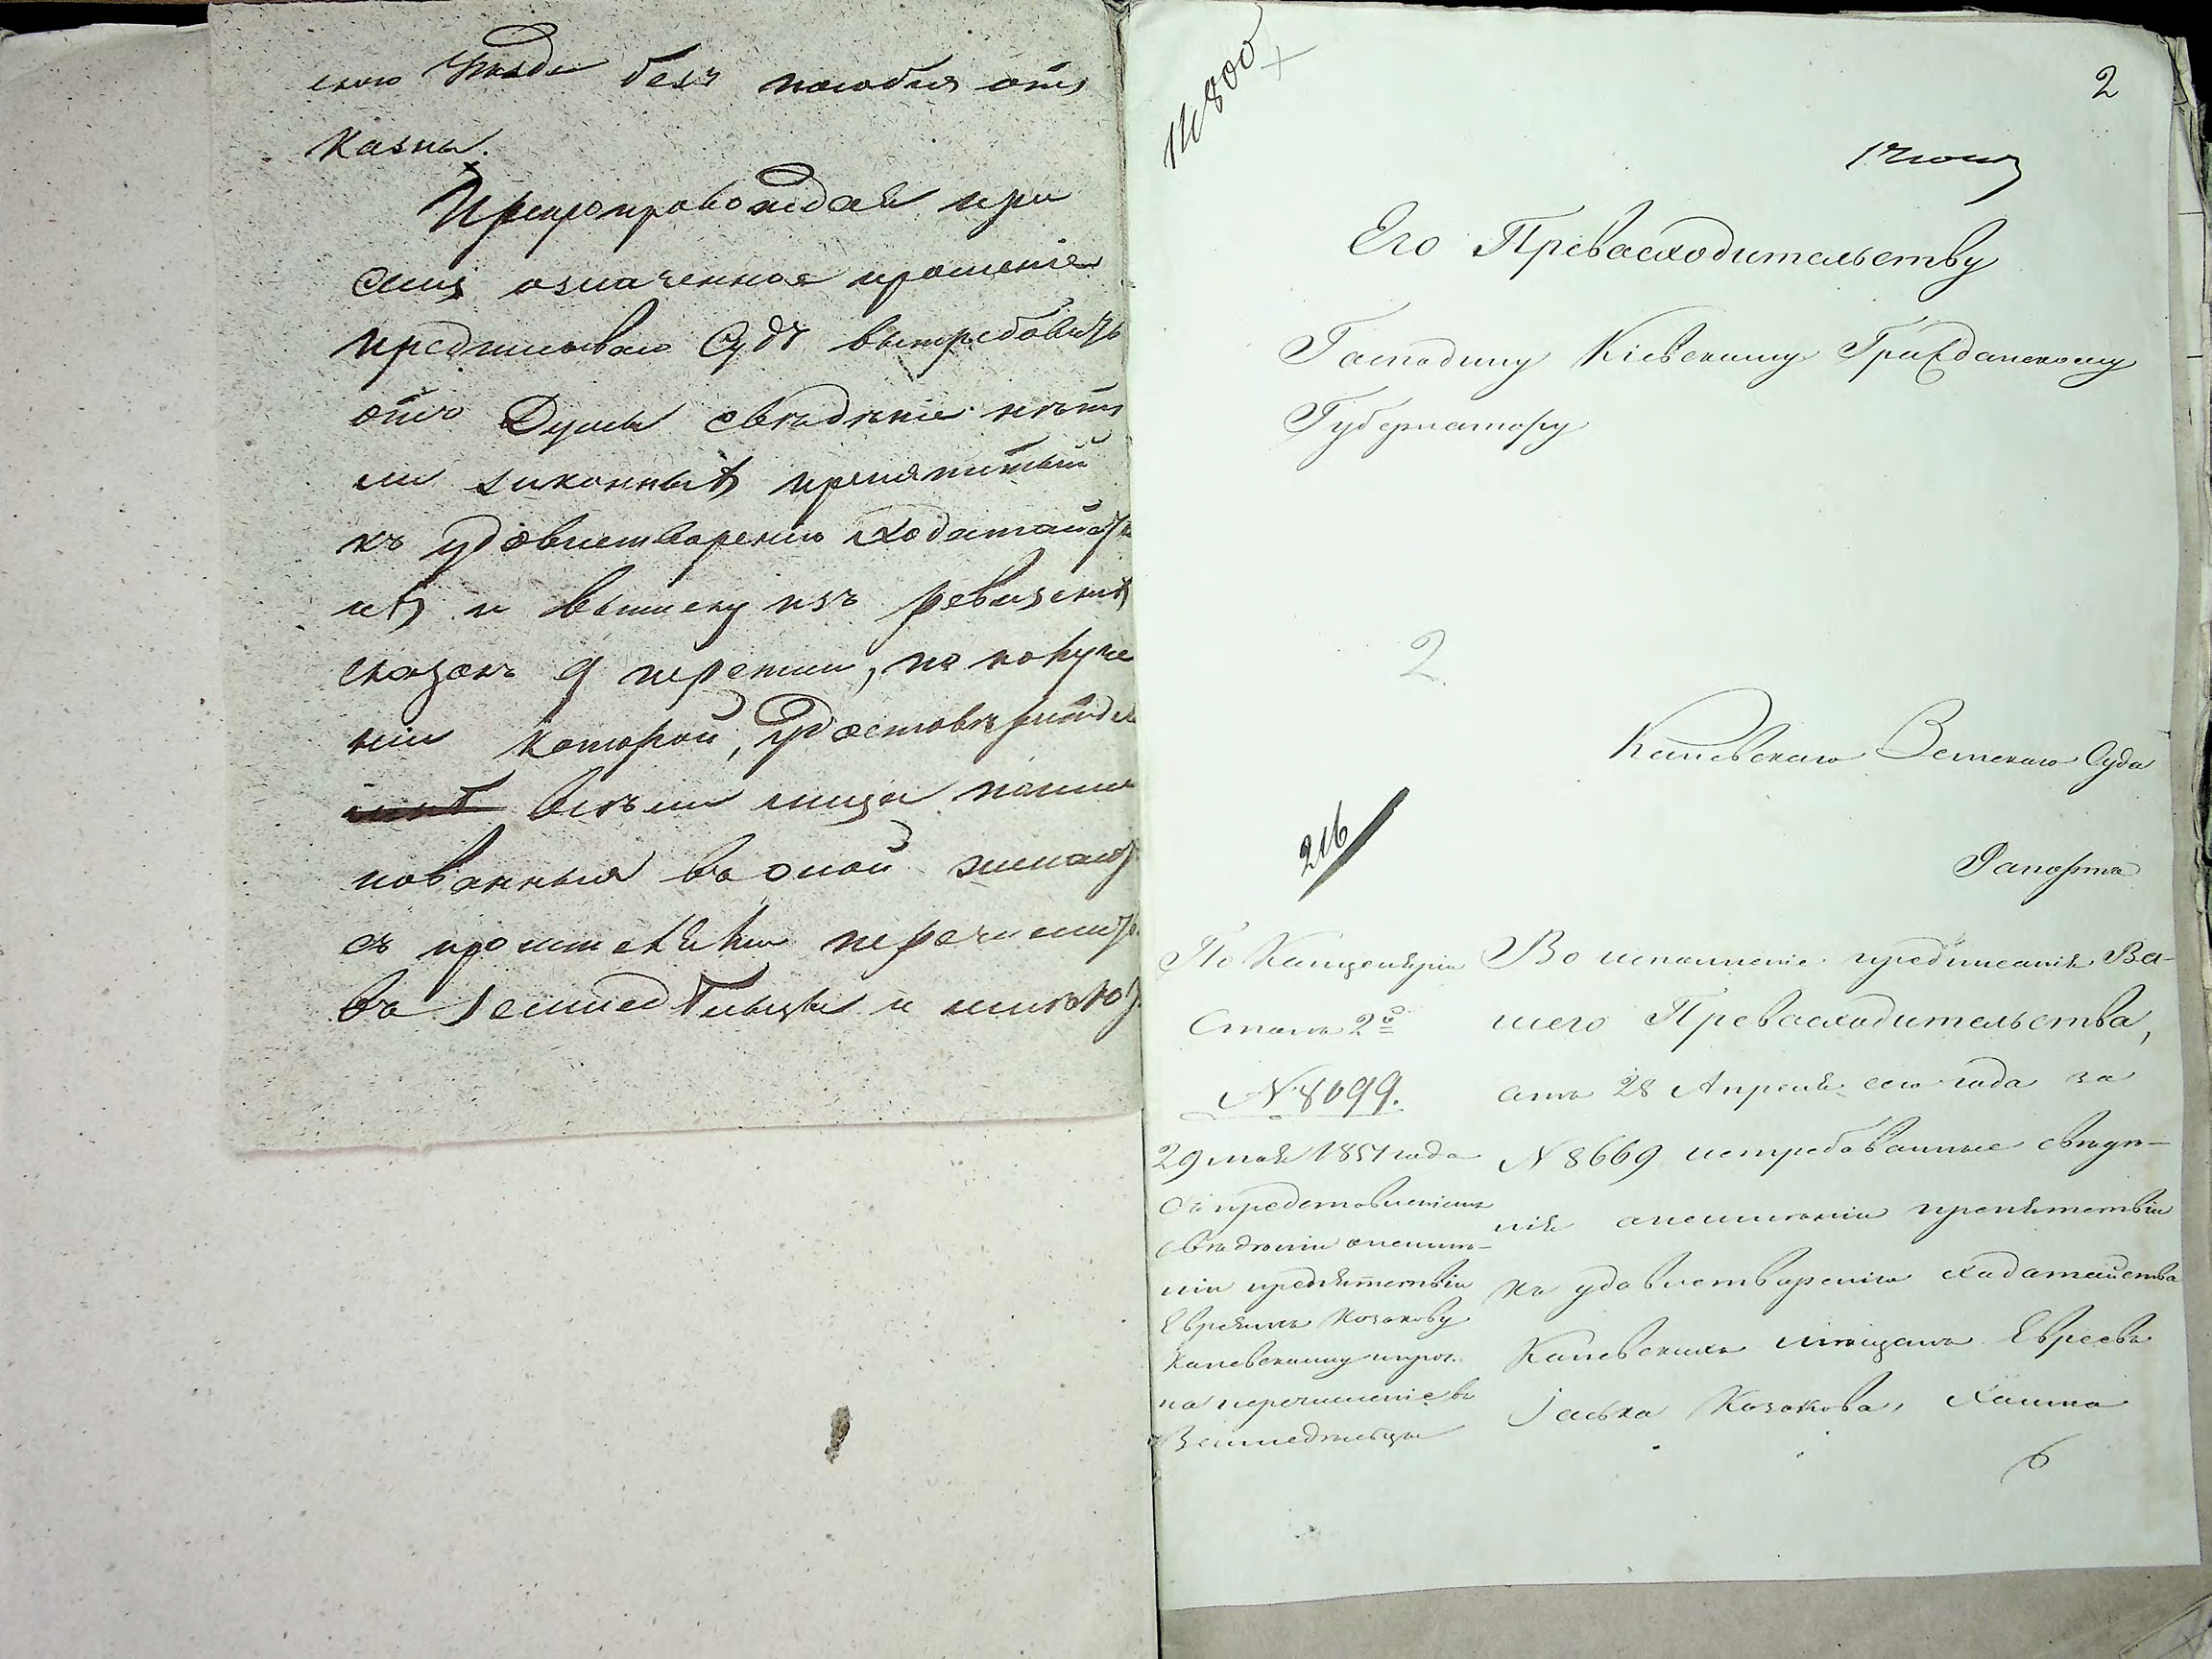 скаго Уѣзда безъ пособія отъ
казны.
Препровождая при
семъ означенное прошеніе
предписываю Суду вытребовать
отъ Думы свѣдѣніе нѣтъ
ли законныхъ препятствій
къ удовлетворенію ходатайств
ихъ и выписку изъ ревизскихъ
сказокъ 9 переписи, по получе
ніи которой, удостовѣриться
всѣ ли лица поиме
нованныя въ оной желаютъ
съ просителями перечислить
въ земледѣльцы и имѣютъ
14800
2
1 Іюня
Его Превосходительству
Господину Кіевскому Гражданскому
Губернатору
2
Каневскаго Земскаго Суда
216
Рапортъ
По Канцеляріи
Столъ 2й
№ 8099.
29 мая 1851 года
Съ представленіемъ
свѣдѣнія онеимѣ-
ніи препятствія
Евреямъ Козакову
Каневскому
на перечисленіе въ
Земледѣльцы
Во исполненіе предписанія Ва-
шего Превосходительства,
отъ 28 Апреля сего года за
№ 8669 истребованныя свѣдѣ-
нія онеимѣніи препятствія
къ удовлетворенію ходатайства
Каневскихъ мѣщанъ Евреевъ
Іоська Козакова, Хаима